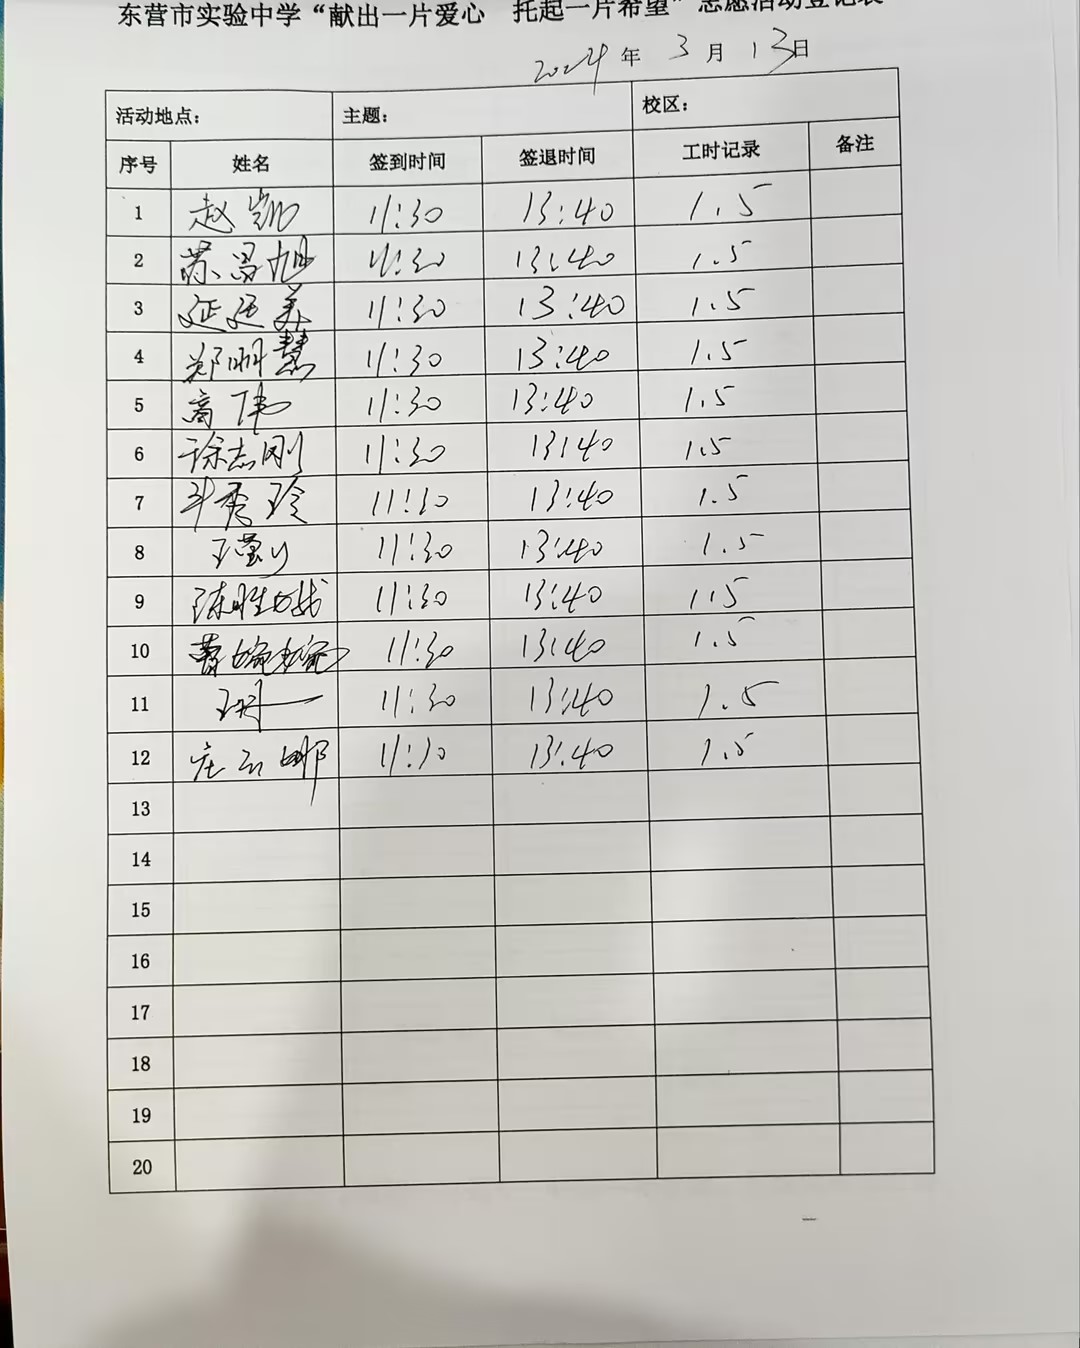 东营市实验中学“献出一片爱心 托起一片希望”志愿活动登记表
2024 年 3 月 13日
活动地点： 主题： 校区：
序号 姓名 签到时间 签退时间 工时记录 备注
1 赵凯 11:30 13:40 1.5
2 苏昌旭 11:30 13:40 1.5
3 延廷美 11:30 13:40 1.5
4 郑明慧 11:30 13:40 1.5
5 高伟 11:30 13:40 1.5
6 徐志刚 11:30 13:40 1.5
7 秀玲 11:30 13:40 1.5
8 11:30 13:40 1.5
9 陈胜娥 11:30 13:40 1.5
10 曹婷婷 11:30 13:40 1.5
11 11:30 13:40 1.5
12 庄云娜 11:30 13:40 1.5
13
14
15
16
17
18
19
20